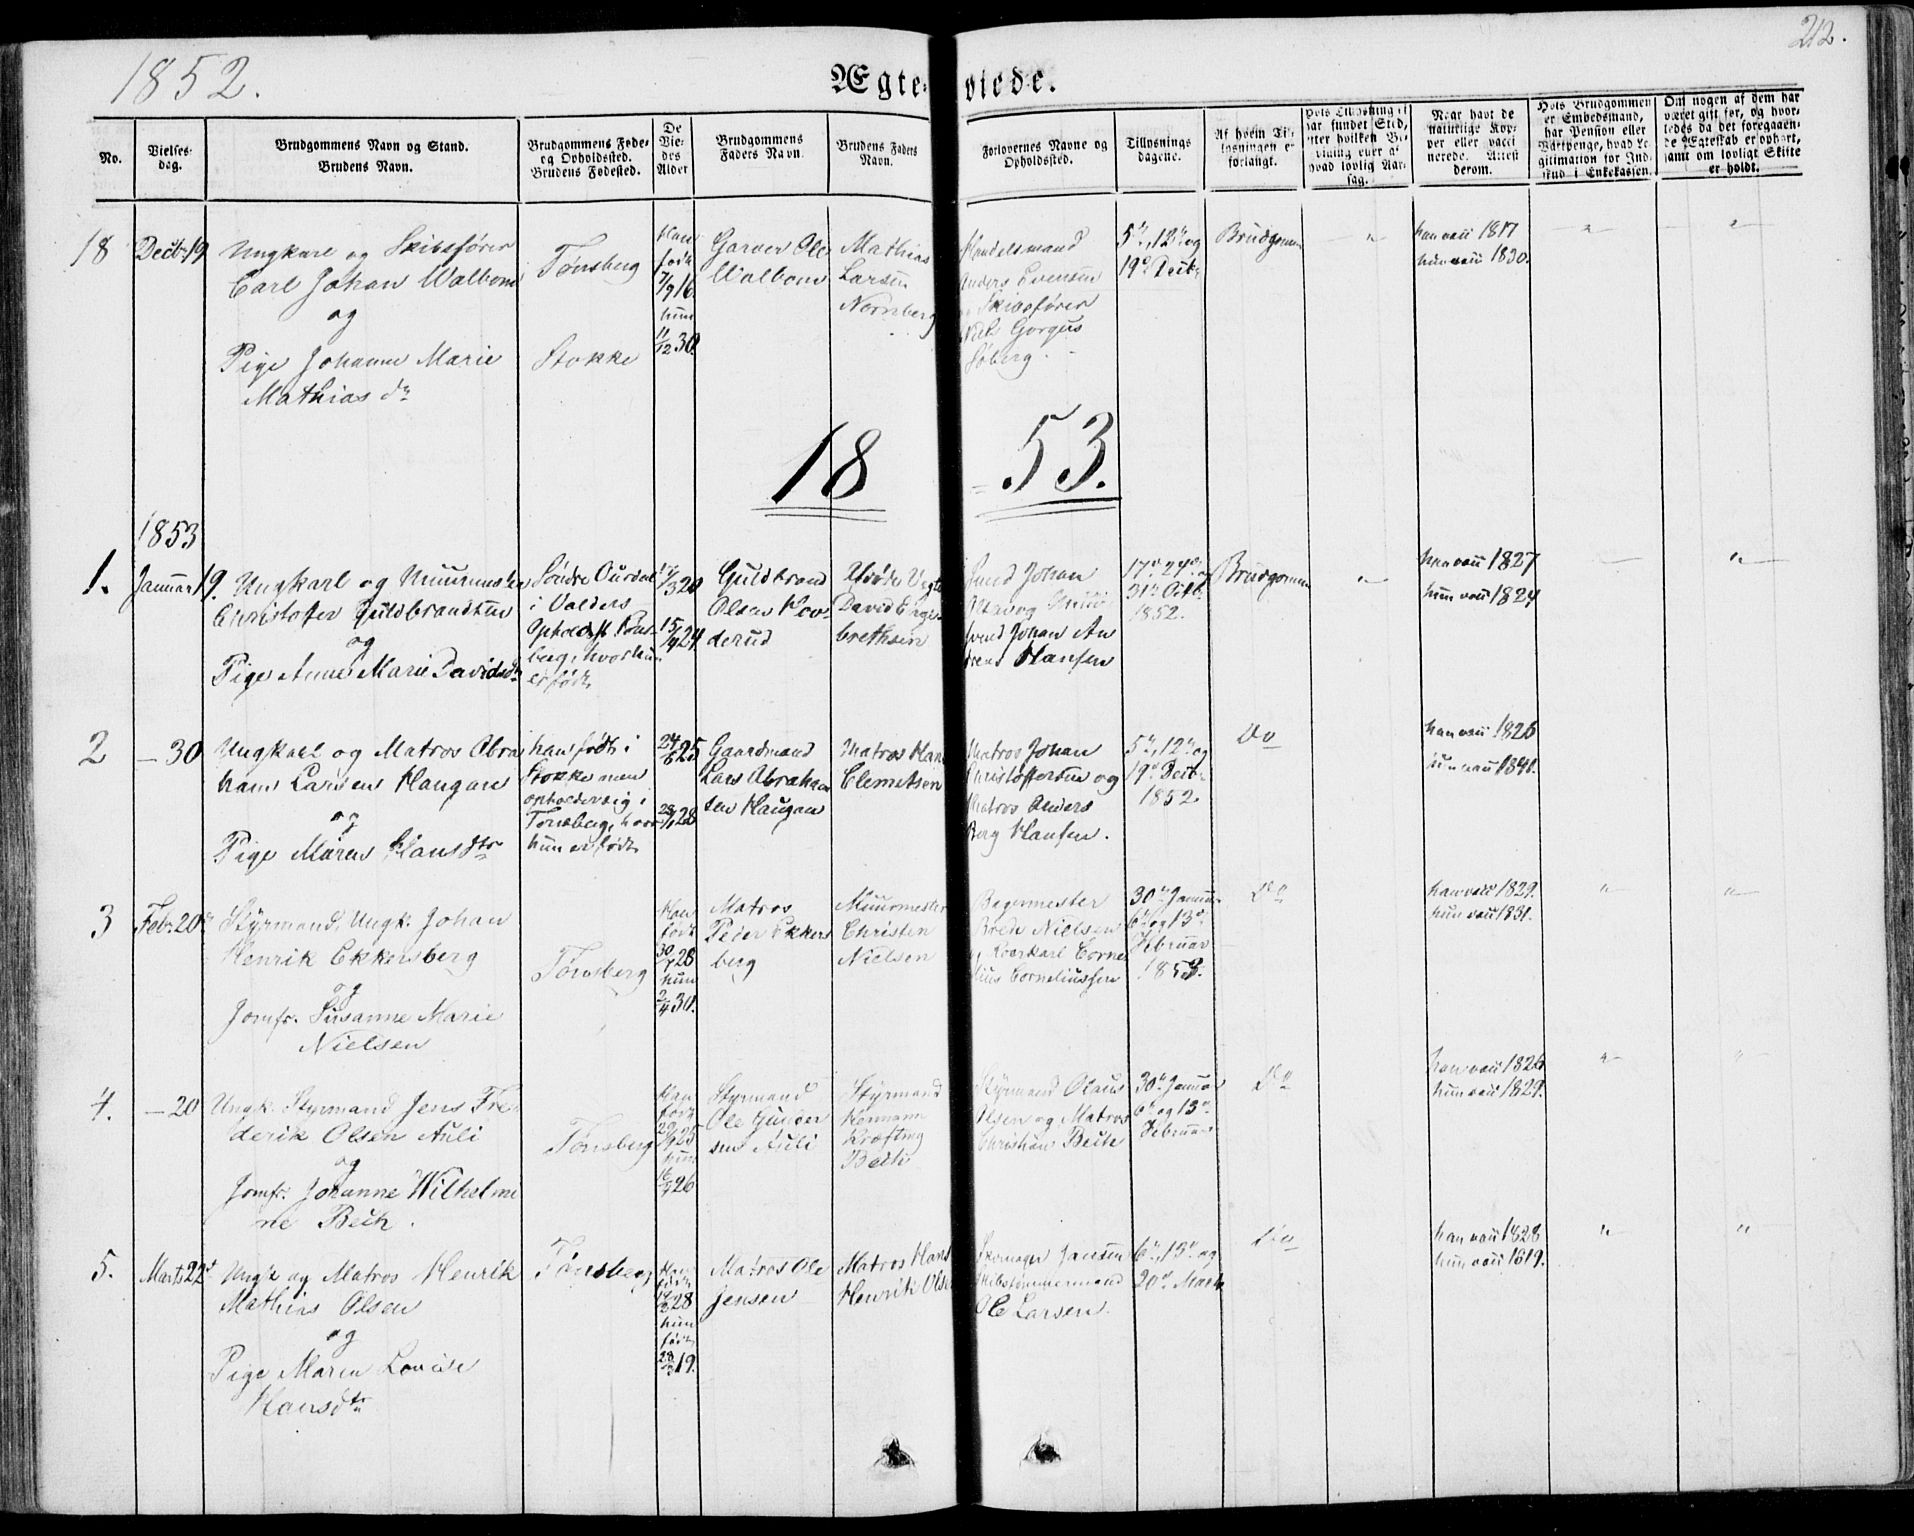 1852.
Ægteviede.
212.
No.
Vielses-
dag.
Brudgommens Navn og Stand.
Brudens Navn.
Brudgommens Føde-
og Opholdssted.
Brudens Fødested.
De
Vie-
des
Alder
Brudgommens
Faders Navn.
Brudens Faders
Navn.
Forlovernes Navne og
Opholdssted.
Tillysnings
dagene.
Af hvem Til-
lysningen er
forlangt.
Hvis Tillysning ei
har fundet Sted,
efter hvilken Be-
vilgning eller af
hvad lovlig Aar-
sag.
Naar havt de
naturlige Kop-
per eller vacci
nerede. Attest
derom.
Hvis Brudgommen
er Embedsmand,
har Pension eller
Vartpenge, hvad Le-
gitimation for Ind-
skud i Enkekassen.
Om nogen af dem har
været gift før, og hvor-
ledes da det foregaaen-
de Ægteskab er ophørt,
samt om lovligt Skifte
er holdt.
18
Decbr 19
Ungkarl og Skibsfører
Carl Johan Walbom
og
Pige Johanne Marie
Mathias dr
Tønsberg
Stokke
Han
født
7/9 16.
hun
11/12 30.
Garver Ole
Walbom
Mathias
Larsen
Nornberg
Handelsmand
Anders Evensen
Skibsfører
Niels Gorgus
Søberg.
5te, 12te og
19de Decbr
Brudgommen
"
han vacc 1817
hun vacc 1830.
"
"
1853.
1853
1.
Januar 19.
Ungkarl og
Christoffer Guldbrandsen
og
Pige Anne Marie Davidsdr
Søndre Ourdal
i Valders
Opholdst. Tøns-
berg, hvor hun
er født
17/3 20
15/4 24
Guldbrand
Olsen Hov-
derud
Afdøde
David Enge-
brethsen
Svend Johan
og
Svend Johan An
dreas Hansen
17de 24de og
31te Octb.
1852.
Brudgommen
"
han vacc 1827
hun vacc 1824
"
2
— 30
Ungkarl og Matros Abra
ham Larsen Haugan
og
Pige Maren Hansdtr
han født i
Stokke men
opholder sig i
Tønsberg, hvor
hun er født
24/6 25
28/1 28
Gaardmand
Lars Abraham
sen Haugan
Matros Hans
Clemetsen
Matros Johan
Christoffersen og
Matros Anders
Berg Hansen.
5te, 12te og
19de Decbr
1852
Do
han vacc 1826
hun vacc 1841.
3
Febr. 20de
Styrmand, Ungk. Johan
Henrik Ekkersberg
og
Jomfr. Susanne Marie
Nielsen
Tønsberg
Han
født
30/7 28
hun
2/4 30.
Matros
Peder Ekkers
berg
Muurmester
Christen
Nielsen
Bagermester
Brede Nielsen
og Kverkarl Corne
lius Corneliussen
30te Januar
6te og 13de
Februar
1853.
Do
han vacc 1829.
hun vacc 1831.
"
"
4.
— 20
Ungk. Styrmand Jens Fre-
derik Olsen Auli
og
Jomfr. Johanne Wilhelmi
ne Bech.
Tønsberg
Han
født
29/9 25
hun
16/7 26
Styrmand
Ole Gulder
sen Auli
Styrmand
Hermann
Krøfting
Bech
Styrmand Olaus
Olsen og Matros
Christian Bech
30te Januar
6te og 13de
Februar
Do
han vacc 1826
hun vacc 1829.
"
"
5.
Marts 22de
Ungk og Matros Henrik
Mathias Olsen
og
Pige Maren Lovise
Hansdtr
Tønsberg
Han
født
28
hun
født
28/3 19.
Matros Ole
Jensen
Matros Hans
Henrik Olsen
Skomager Jansen
Skibstømmermand
Ole Larsen.
6te, 13de og
20de Marts
Do
han vacc 1828
hun vacc 1819.
"
"